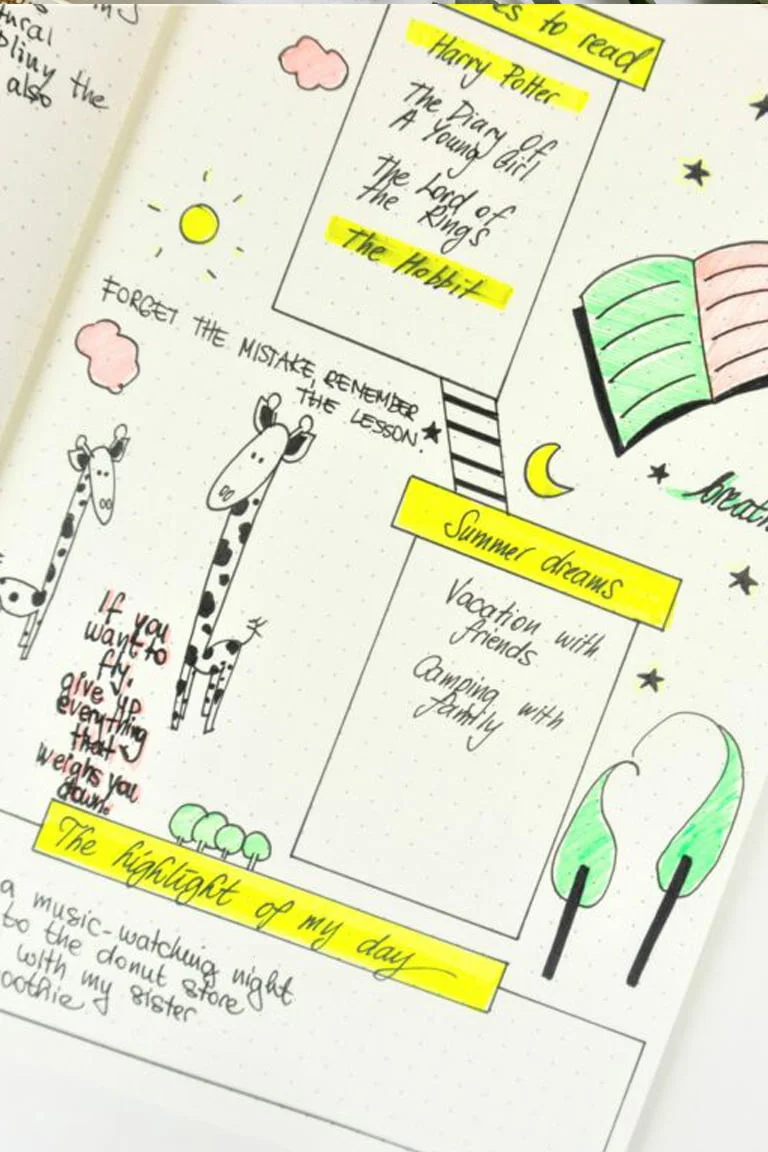 Pliny the
also
to read
Harry Potter
The Diary Of
A Young Girl
The Lord of
the Rings
The Hobbit
FORGET THE MISTAKE, REMEMBER
THE LESSON.
Summer dreams
Vacation with
friends
Camping with
family
If you
want to
fly,
give up
everything
that
weighs you
down.
The highlight of my day
a music-watching night
to the donut store
with my sister